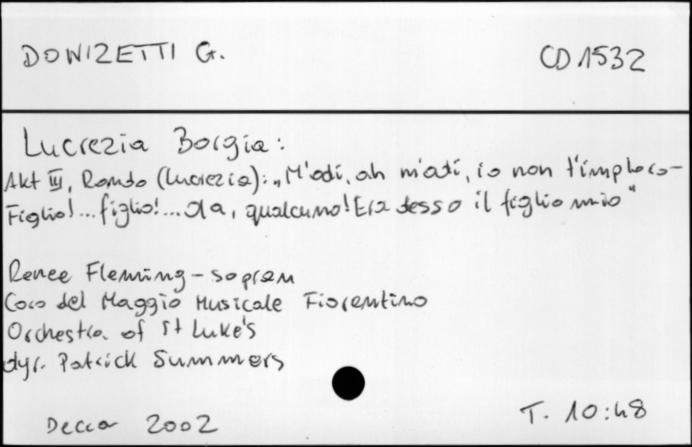 DONIZETTI G.
CD 1532
Lucrezia Borgia:
Akt III, Rondo (Lucrezia): „M'odi, ah m'odi, io non t'imploro-
Figlio!...figlio!...Ola, qualcuno! Era desso il figlio mio"
Renee Fleming - sopran
Coro del Maggio Musicale Fiorentino
Orchestra of St Luke's
dyr. Patrick Summers
Decca 2002
T. 10:48